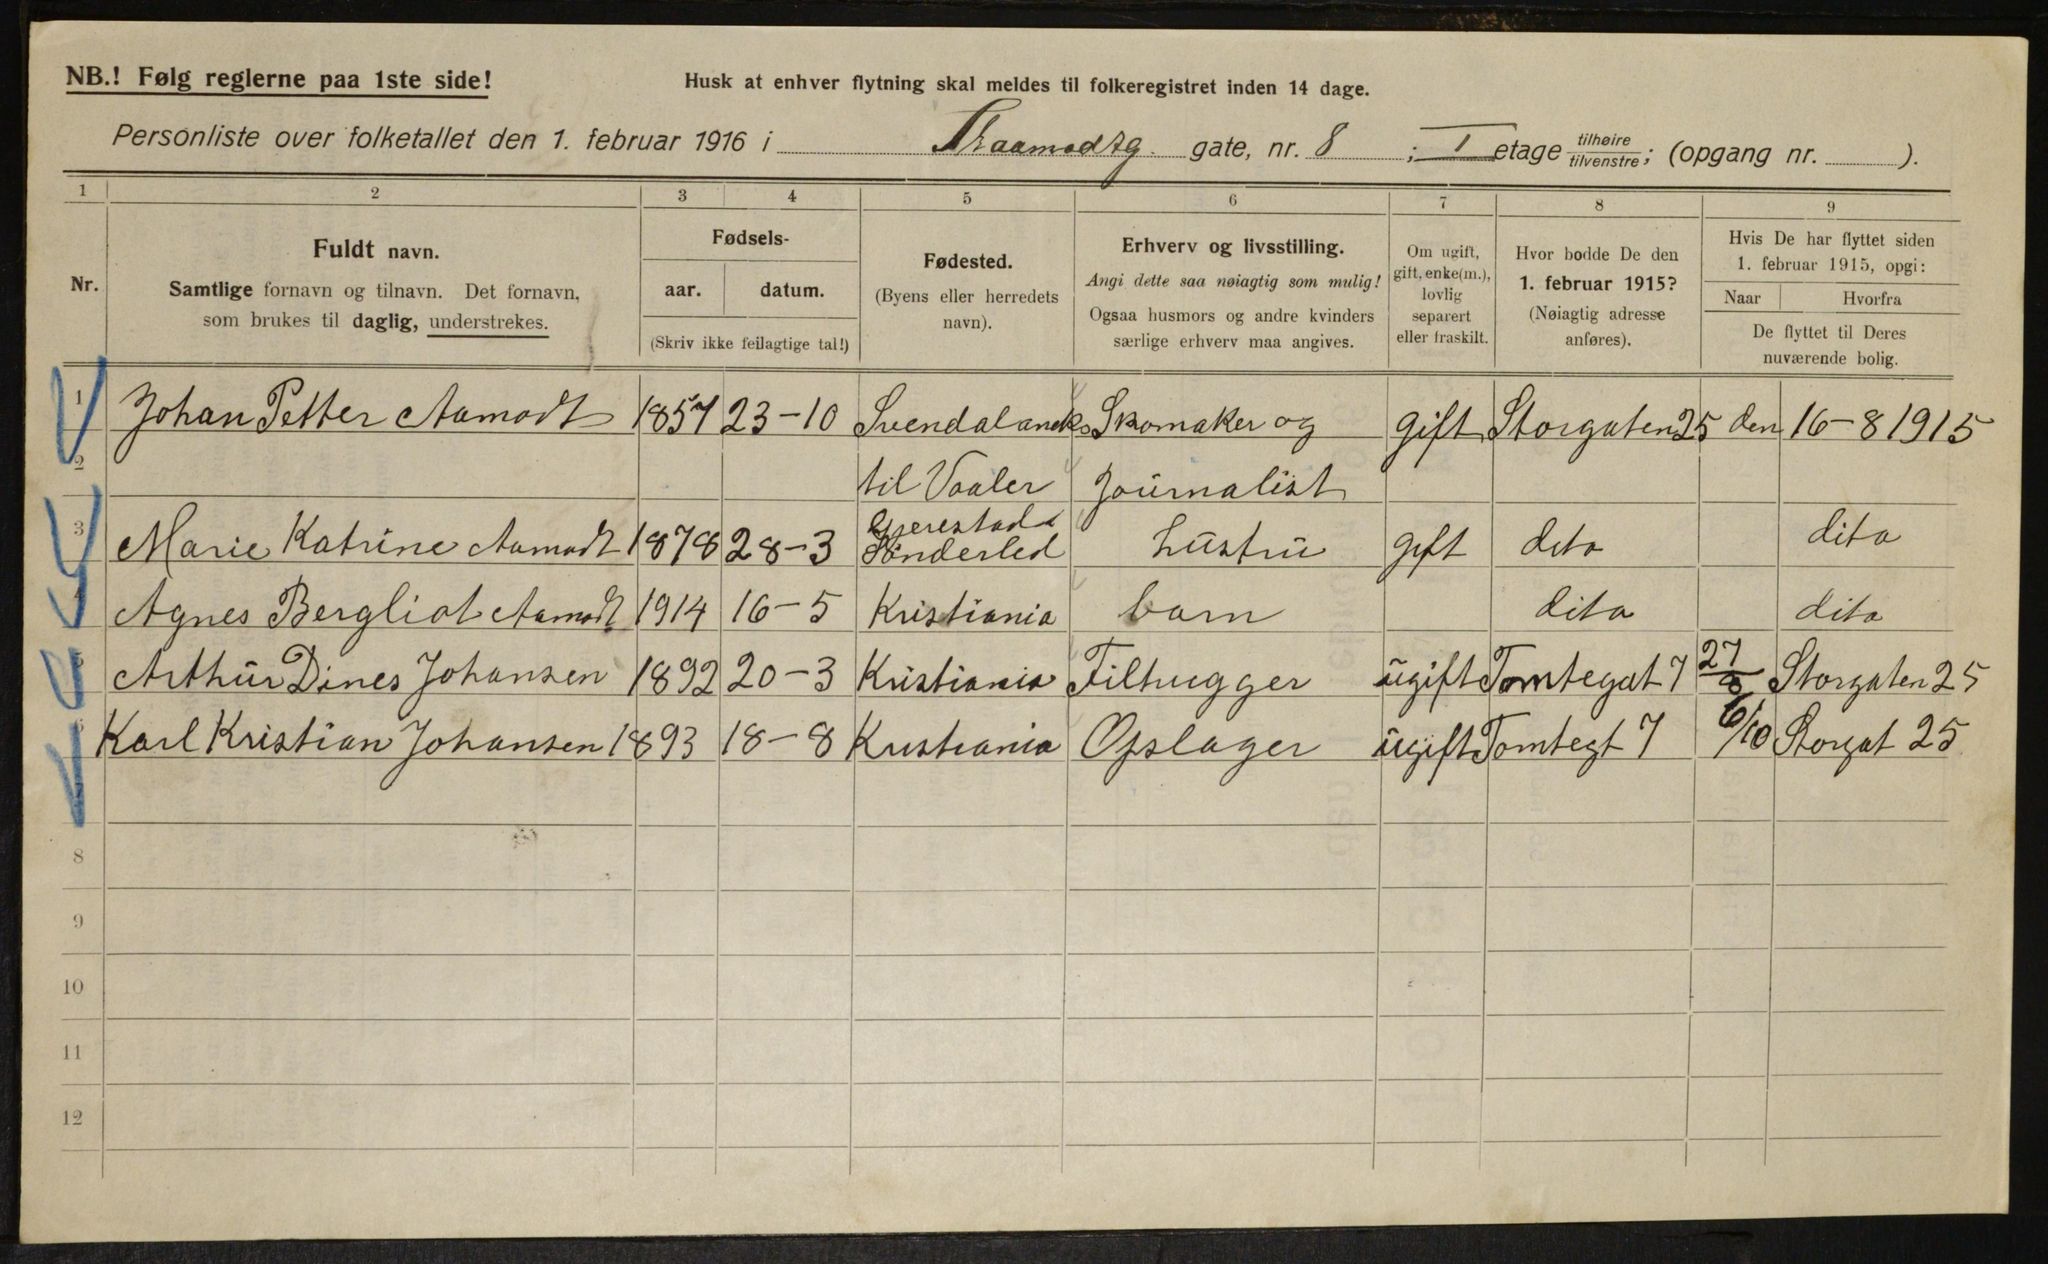 NB.! Følg reglerne paa 1ste side!
Husk at enhver flytning skal meldes til folkeregistret inden 14 dage.
Personliste over folketallet den 1. februar 1916 i gate, nr. 8 ; I etage tilhøire tilvenstre; (opgang nr. ).
1 2 3 4 5 6 7 8 9
Nr.
Fuldt navn.
Samtlige fornavn og tilnavn. Det fornavn,
som brukes til daglig, understrekes.
Fødsels-
aar. datum.
(Skriv ikke feilagtige tal!)
Fødested.
(Byens eller herredets
navn).
Erhverv og livsstilling.
Angi dette saa nøiagtig som mulig!
Ogsaa husmors og andre kvinders
særlige erhverv maa angives.
Om ugift,
gift, enke(m.),
lovlig
separert
eller fraskilt.
Hvor bodde De den
1. februar 1915?
(Nøiagtig adresse
anføres).
Hvis De har flyttet siden
1. februar 1915, opgi:
Naar Hvorfra
De flyttet til Deres
nuværende bolig.
1 Johan Petter Aamodt 1857 23-10 Skomaker og gift Storgaten 25 den 16-8 1915
2 til Vaaler Journalist
3 Marie Katrine Aamodt 1878 28-3 Gjerestad Sønderled hustru gift dito dito
4 Agnes Bergliot Aamodt 1914 16-5 Kristiania barn dito dito
5 Arthur Dines Johansen 1892 20-3 Kristiania Filhugger ugift Tomtegat 7 27/8 Storgaten 25
6 Karl Kristian Johansen 1893 18-8 Kristiania Opslager ugift Tomtegt 7 6/10 Storgat 25
7
8
9
10
11
12